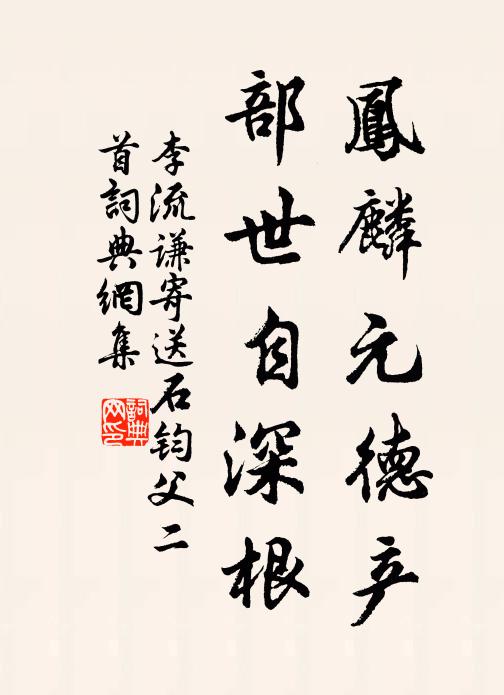 鳳麟元德产
部世自深根
李流谦寄送石鈞父二
首詞典網集
詞典
网印